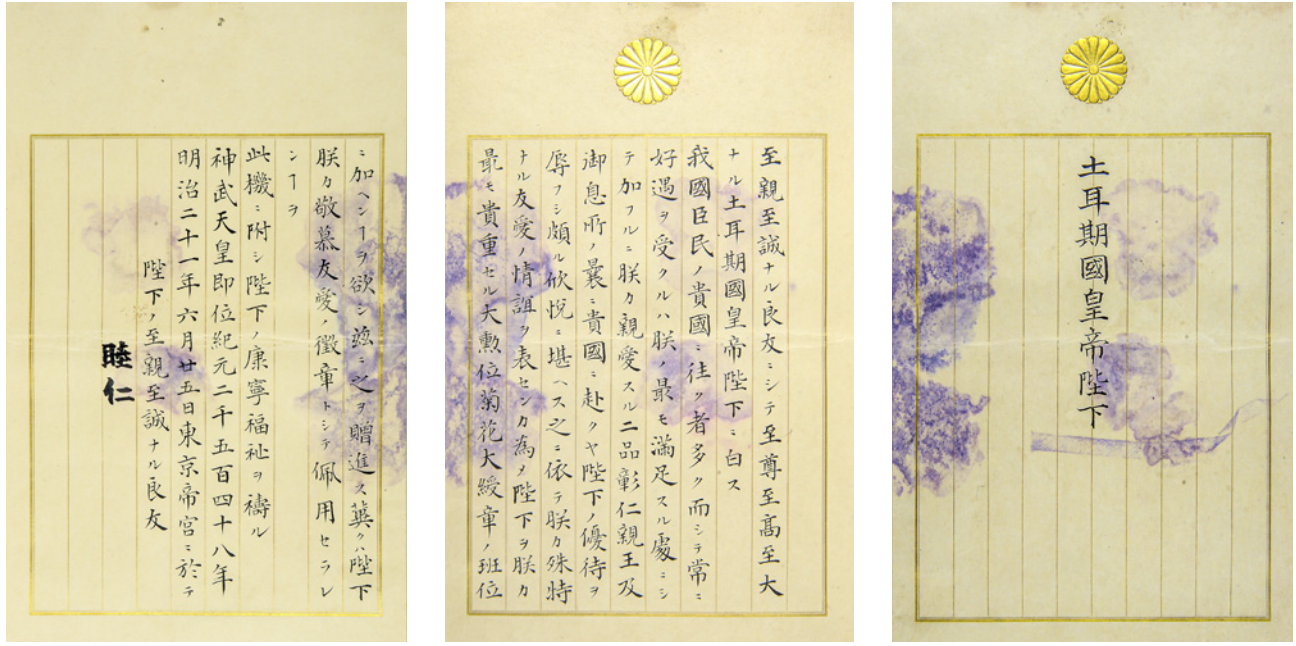 土耳期國皇帝陛下
至親至誠ナル良友ニシテ至尊至高至大
ナル土耳期國皇帝陛下ニ白ス
我國臣民ノ貴國ニ往ク者多ク而シテ常ニ
好遇ヲ受クルハ朕ノ最モ滿足スル處ニシ
テ加フルニ朕カ親愛スル二品彰仁親王及
御息所ノ曩ニ貴國ニ赴クヤ陛下ノ優待ヲ
辱フシ頗ル欣悅ニ堪ヘス之ニ依テ朕カ殊特
ナル友愛ノ情誼ヲ表センカ為メ陛下ヲ朕カ
最モ貴重セル大勲位菊花大綬章ノ班位
ニ加ヘンヿヲ欲シ茲ニ之ヲ贈進ス冀クハ陛下
朕カ敬慕友愛ノ徵章トシテ佩用セラレ
ンヿヲ
此機ニ附シ陛下ノ康寧福祉ヲ禱ル
神武天皇即位紀元二千五百四十八年
明治二十一年六月廿五日東京帝宮ニ於テ
陛下ノ至親至誠ナル良友
睦仁